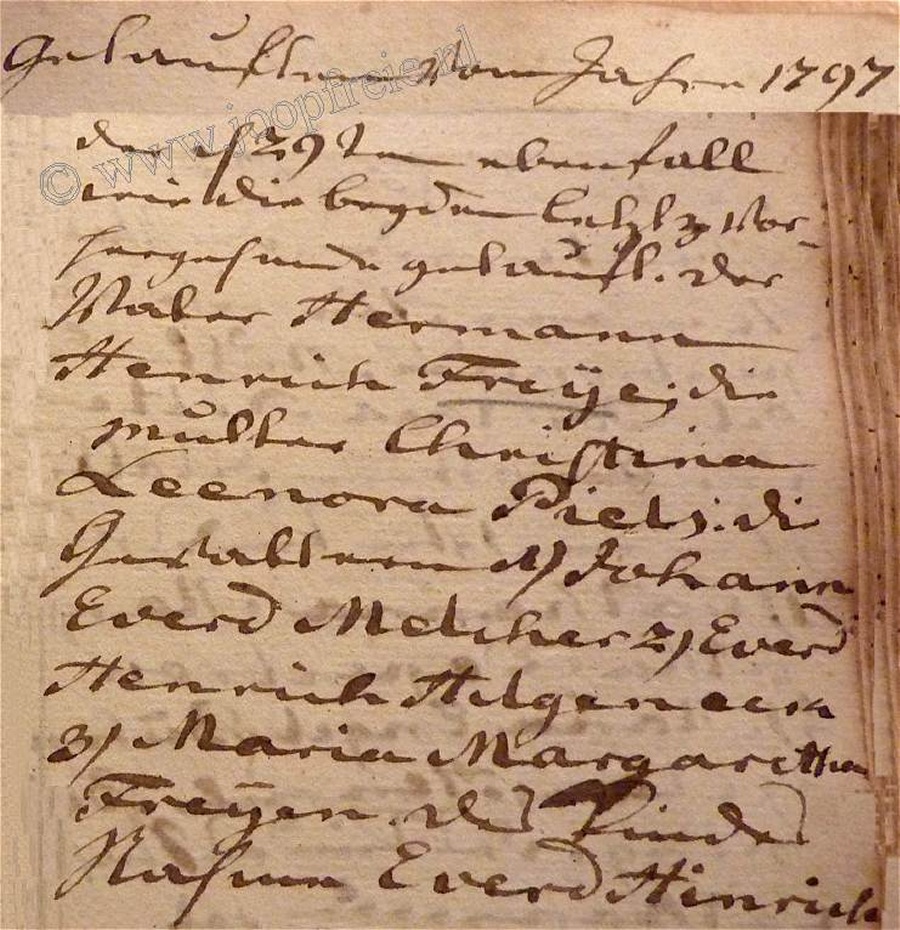 Getauften vom Jahre 1797
© www.jaopfreie.nl
den 29ten ebenfall
wie die beyden letzt vor-
hergehende getauft. der
Vater Hermann
Henrich Freÿe; die
Mutter Christina
Leenora Piels; die
Gevattern 1) Johann
Everd Melcher 2) Everd
Henrich Hilgeneck
3) Maria Margaretha
Freÿen. des Kindes
Nahme Everd Hinrich